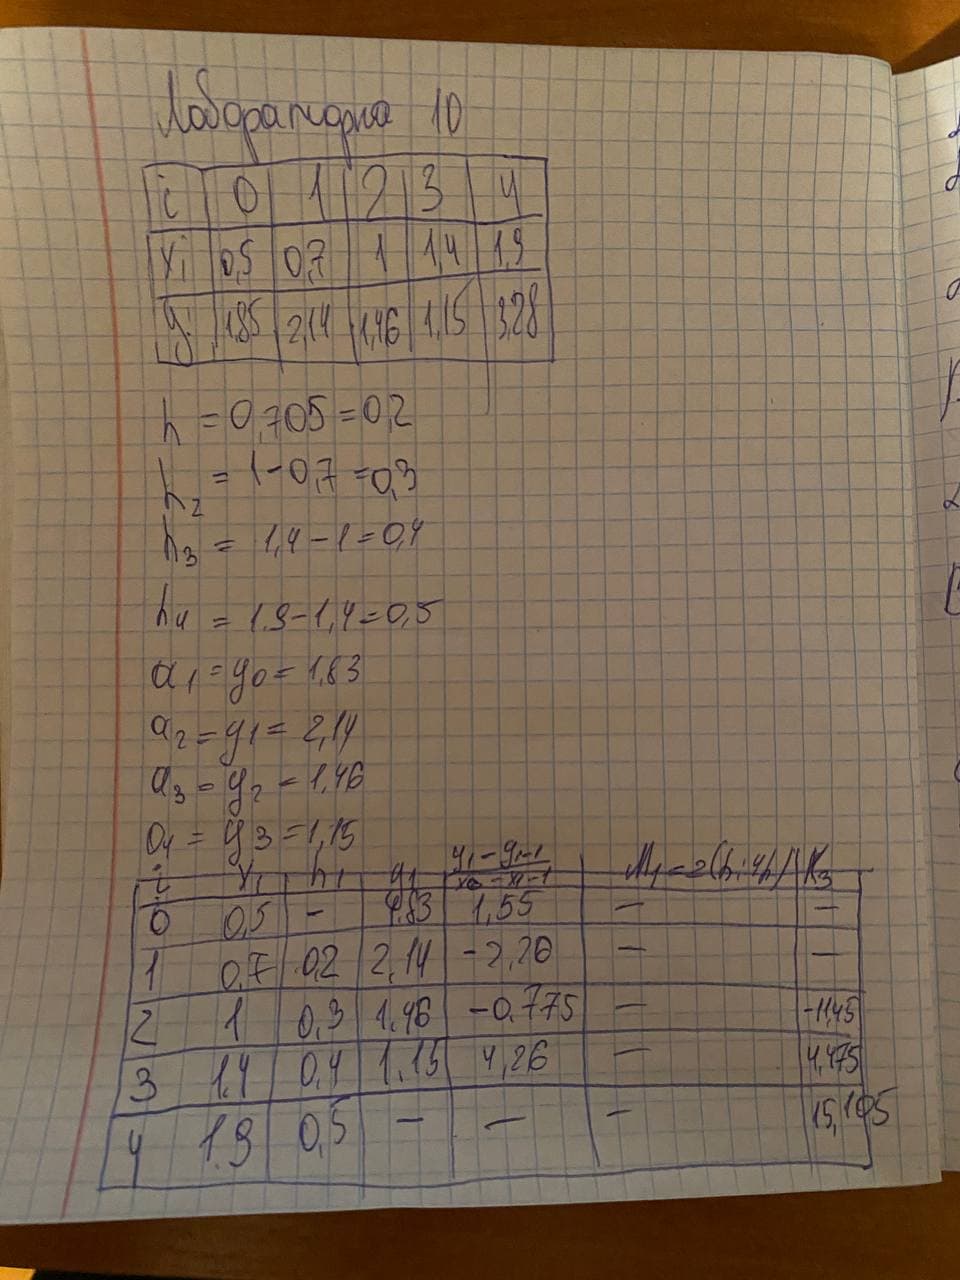 Лабораторна 10
i 0 1 2 3 4
xi 0,5 0,7 1 1,4 1,9
yi 1,85 2,14 1,46 1,15 3,28
h = 0,705 = 0,2
h2 = 1 - 0,7 = 0,3
h3 = 1,4 - 1 = 0,4
h4 = 1.9 - 1,4 = 0,5
a1 = y0 = 1,83
a2 = y1 = 2,14
a3 = y2 = 1,46
a4 = y3 = 1,15
i x1 h1 y1 y1 - y1-1 M1 = 2(h : 4h) K3
0 0,5 - 1,83 1,55 — —
1 0,7 0,2 2,14 -2,26 — —
2 1 0,3 1,46 -0,775 — -11,45
3 1,4 0,4 1,15 4,26 — 4,475
4 1.9 0,5 — — — 15,105